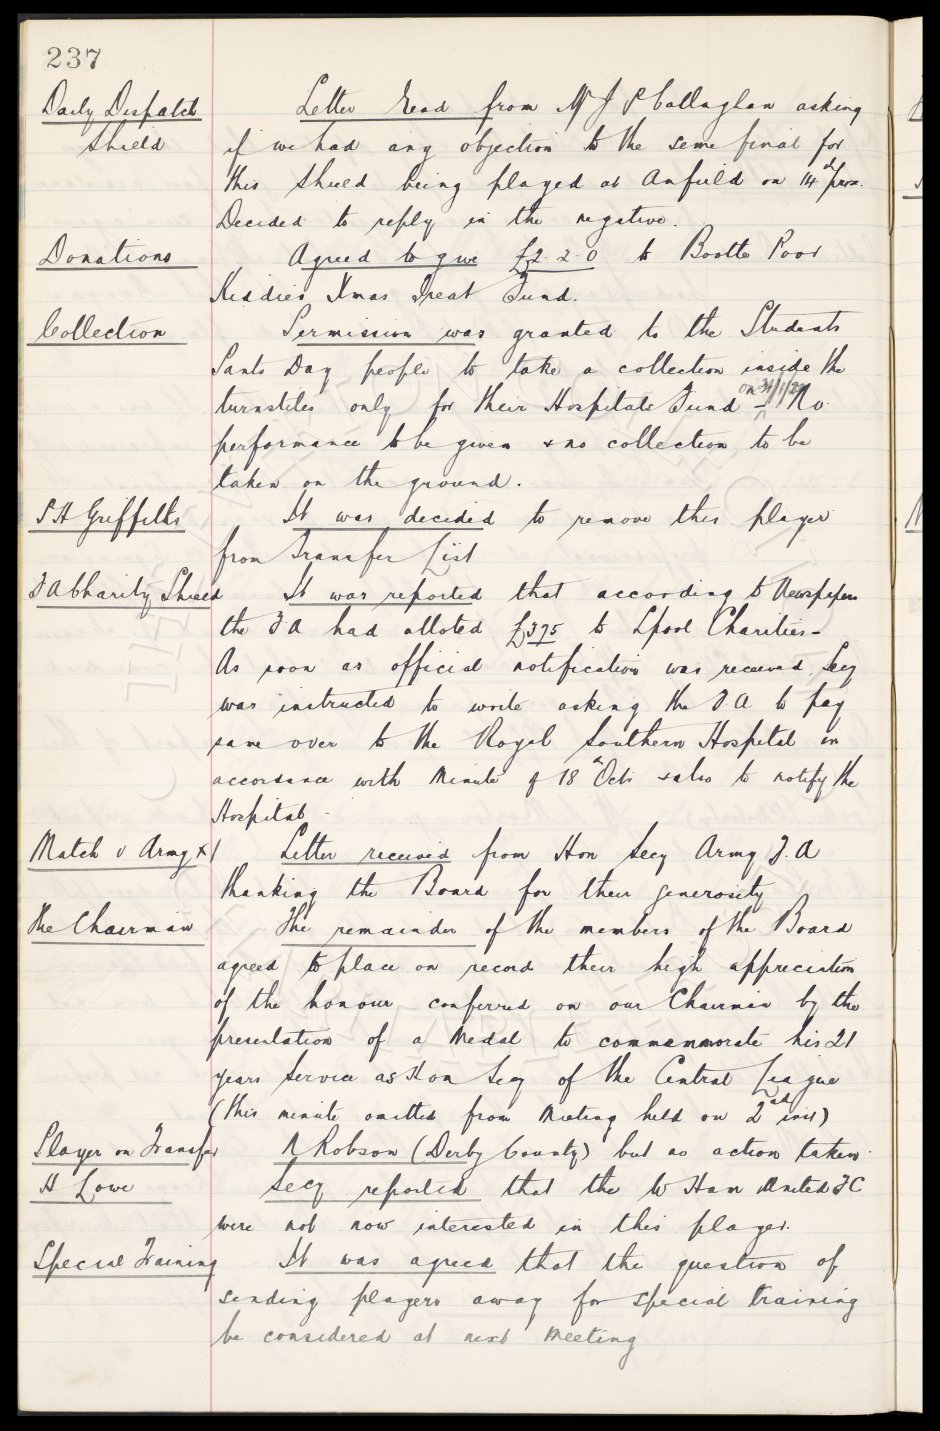 237
Daily Dispatch Letter read from Mr J P Callaghan asking
Shield if we had any objection to the semi final for
this Shield being played at Anfield on 14th prox.
Decided to reply in the negative.
Donations Agreed to give £2.2.0 to Bootle Poor
Kiddies Xmas Treat Fund.
Collection Permission was granted to the Students
Panto Day people to take a collection inside the
on 31/1/
turnstiles only for their Hospitals Fund - No
performance to be given & no collection to be
taken on the ground.
P H Griffiths It was decided to remove this player
from Transfer List
F A Charity Shield It was reported that according to Newspapers
the F A had alloted £375 to Lpool Charities -
As soon as official notification was received Secy
was instructed to write asking the F.A to pay
same over to the Royal Southern Hospital in
accordance with Minute of 18th Octr & also to notify the
Hospital -
Match v Army XI Letter received from Hon Secy Army F.A
thanking the Board for their generosity
The Chairman The remainder of the members of the Board
agreed to place on record their high appreciation
of the honour conferred on our Chairman by the
presentation of a Medal to commemmorate his 21
years service as Hon Secy of the Central League
(this minute omitted from Meeting held on 2nd inst)
Player on Transfer N Robson (Derby County) but no action taken.
H Lowe Secy reported that the W Ham United F C
were not now interested in this player.
Special Training It was agreed that the question of
sending players away for special training
be considered at next meeting